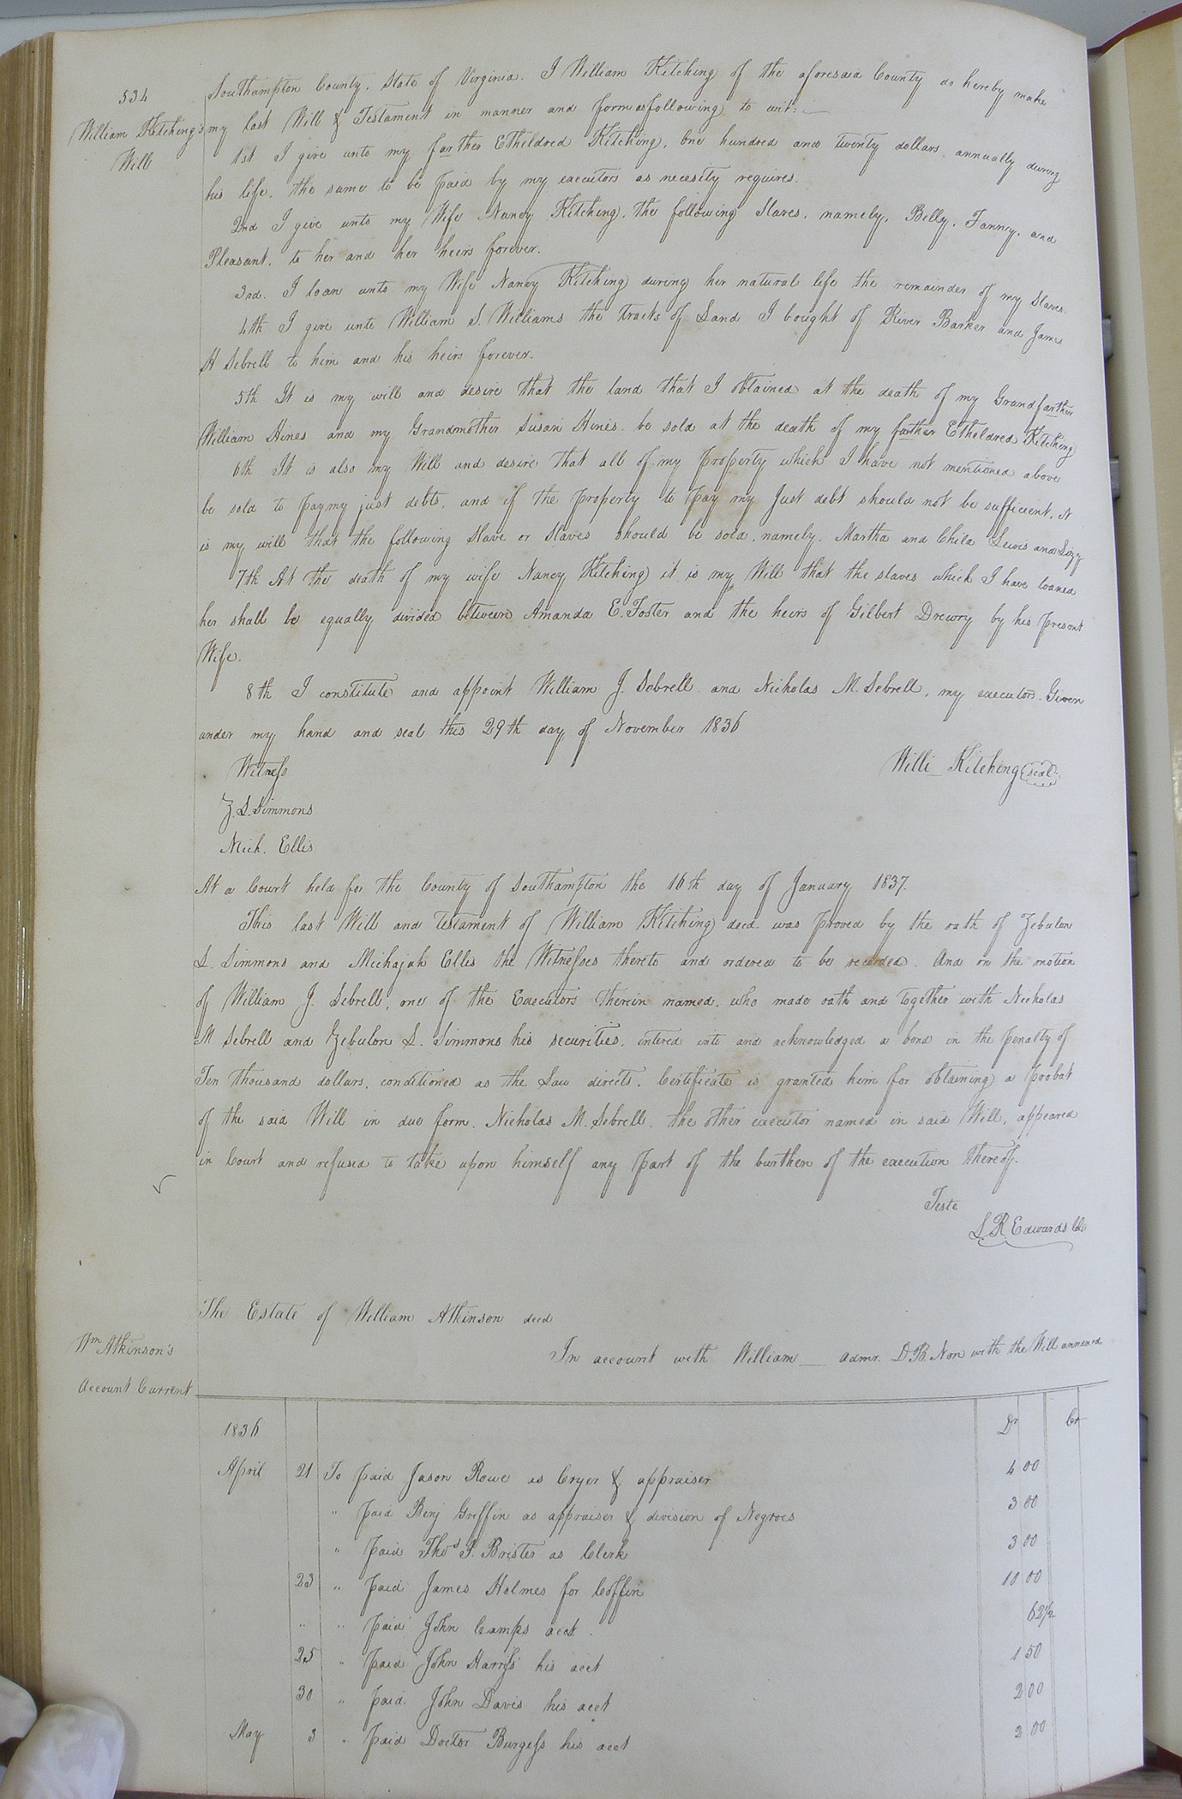 534
William Kitching's
Will
Southampton County, State of Virginia. I William Kitching of the aforesaid County do hereby make
my last Will & Testament in manner and form as following, to wit: —
1st I give unto my farther Etheldred Kitching, one hundred and twenty dollars, annually during
his life, the same to be paid by my executors as necesity requires.
2nd I give unto my Wife Nancy Kitching, the following Slaves, namely, Billy, Fanney, and
Pleasant, to her and her heirs forever.
3rd. I loan unto my Wife Nancy Kitching during her natural life the remainder of my Slaves.
4th I give unto William S. Williams the tracts of Land I bought of River Barker and James
H Sebrell to him and his heirs forever.
5th It is my will and desire that the land that I obtained at the death of my Grandfarther
William Hines and my Grandmother Susan Hines. be sold at the death of my farther Etheldred Kitching
6th It is also my Will and desire that all of my property which I have not mentioned above
be sold to pay my just debts, and if the property to pay my Just debt should not be sufficient, it
is my will that the following Slave or Slaves should be sold, namely. Martha and Child Lewis and
7th At the death of my wife Nancy Kitching it is my Will that the slaves which I have loaned
her shall be equally divided between Amanda E. Foster and the heirs of Gilbert Drewry by his present
Wife.
8th I constitute and appoint William J. Sebrell and Nicholas M. Sebrell, my executors. Given
under my hand and seal this 29th day of November 1836
Witness
Willi Kitching seal
Z. S. Simmons
Mich. Ellis
At a Court held for the County of Southampton the 16th day of January 1837.
This last Will and Testament of William Kitching decd. was proved by the oath of Zebulon
S. Simmons and Michajah Ellis the Witnesses thereto and ordered to be recorded. And on the motion
of William J. Sebrell, one of the Executors therein named, who made oath and together with Nicholas
M Sebrell and Zebulon S. Simmons his securities, intered into and acknowledged a bond in the penalty of
Ten thousand dollars, conditioned as the Law directs. Certificate is granted him for obtaining a probat
of the said Will in due form. Nicholas M. Sebrell, the other executor named in said Will, appeared
in Court and refused to take upon himself any part of the burthen of the execution thereof.
Teste
L. R. Edwards Clk
The Estate of William Atkinson decd
Wm Atkinson's
Account Current
In account with William — admr. D. B. Non with the Will annexed
1836 Dr Cr
April 21 To paid Jason Rowe as Cryer & appraiser 4 00
" paid Benj Griffin as appraiser & division of Negroes 3 00
" paid Thos P. Brister as Clerk 3 00
23 " paid James Holmes for Coffin 10 00
" " paid John Camps acct. 62½
25 " paid John Harriss his acct 1 50
30 " paid John Davis his acct 2 00
May 3 " paid Doctor Burgess his acct 2 00